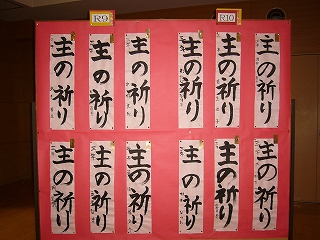 R9 R10
主の祈り 主の祈り 主の祈り 主の祈り 主の祈り 主の祈り
主の祈り 主の祈り 主の祈り 主の祈り 主の祈り 主の祈り